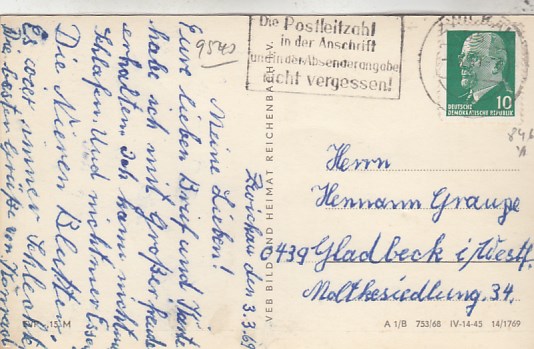 Die Postleitzahl
in der Anschrift
und in der Absenderangabe
nicht vergessen!
ZWICKAU
10
DEUTSCHE
DEMOKRATISCHE REPUBLIK
9540
Zwickau den 3.3.69
Meine Lieben!
Eure lieben Brief und Karte
habe ich mit Großer Freude
erhalten. Ich kann nicht mer
Schlafen. Und nicht mer Essen
Die Nieren Bluten.
Es wier immer Schlechter
Die besten Grüße von Konrad
VEB BILD UND HEIMAT REICHENBACH i. V.
Herrn
Hermann Grauze
0439 Gladbeck i/Westf.
Moltkesiedlung 34.
15 M
A 1/B 753/68 IV-14-45 14/1769